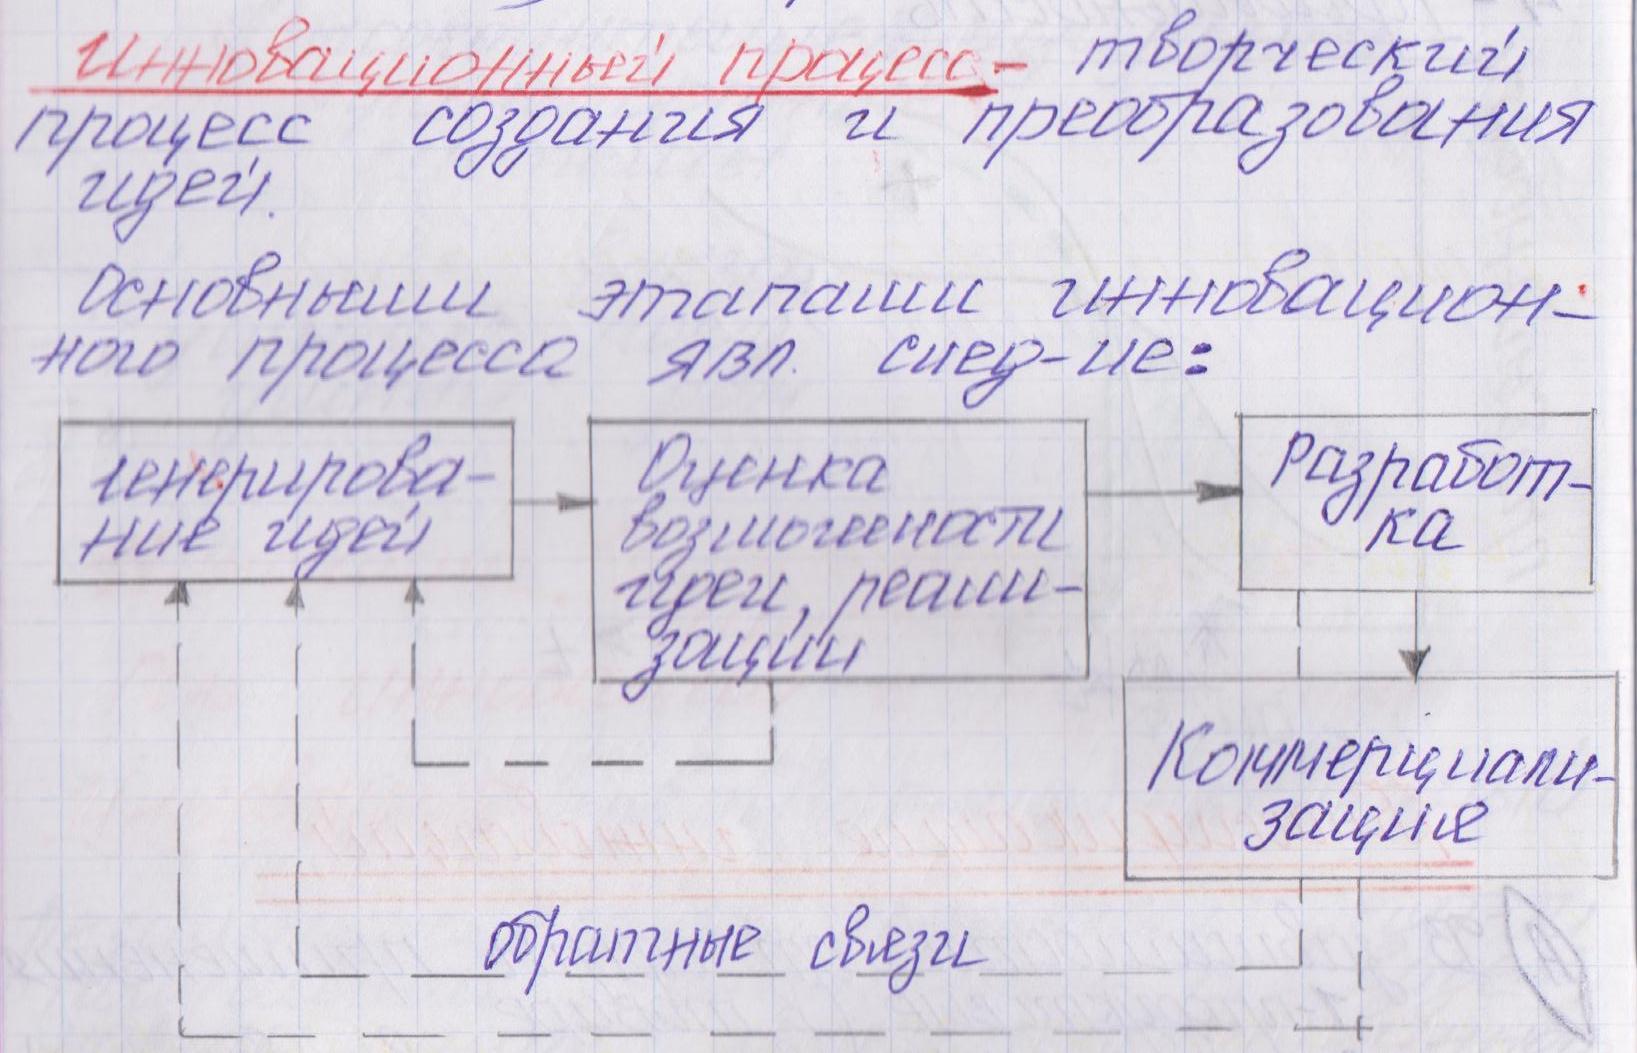 Инновационный процесс - творческий
процесс создания и преобразования
идей.
Основными этапами инновацион-
ного процесса явл. след-ие:
Генерирова-
ние идей
Оценка
возможности
идеи, реали-
зации
Разработ-
ка
Коммерциали-
зация
обратные связи